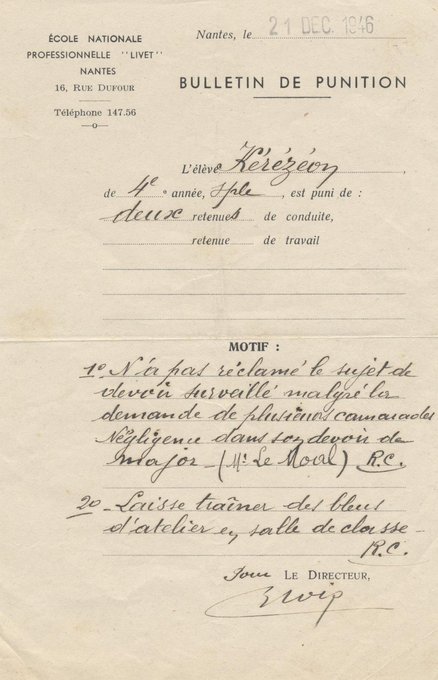 ÉCOLE NATIONALE
PROFESSIONNELLE "LIVET"
NANTES
16, RUE DUFOUR
Téléphone 147.56
Nantes, le 21 DEC. 1946
BULLETIN DE PUNITION
L'élève Kérézéon,
de 4e année, sple, est puni de :
deux retenues de conduite,
retenue de travail
MOTIF :
1o N'a pas réclamé le sujet de
devoir surveillé malgré la
demande de plusieurs camarades
Négligence dans son devoir de
major – (Mr Le Moal) R.C.
2o Laisse traîner des bleus
d'atelier en salle de classe –
R.C.
Pour LE DIRECTEUR,